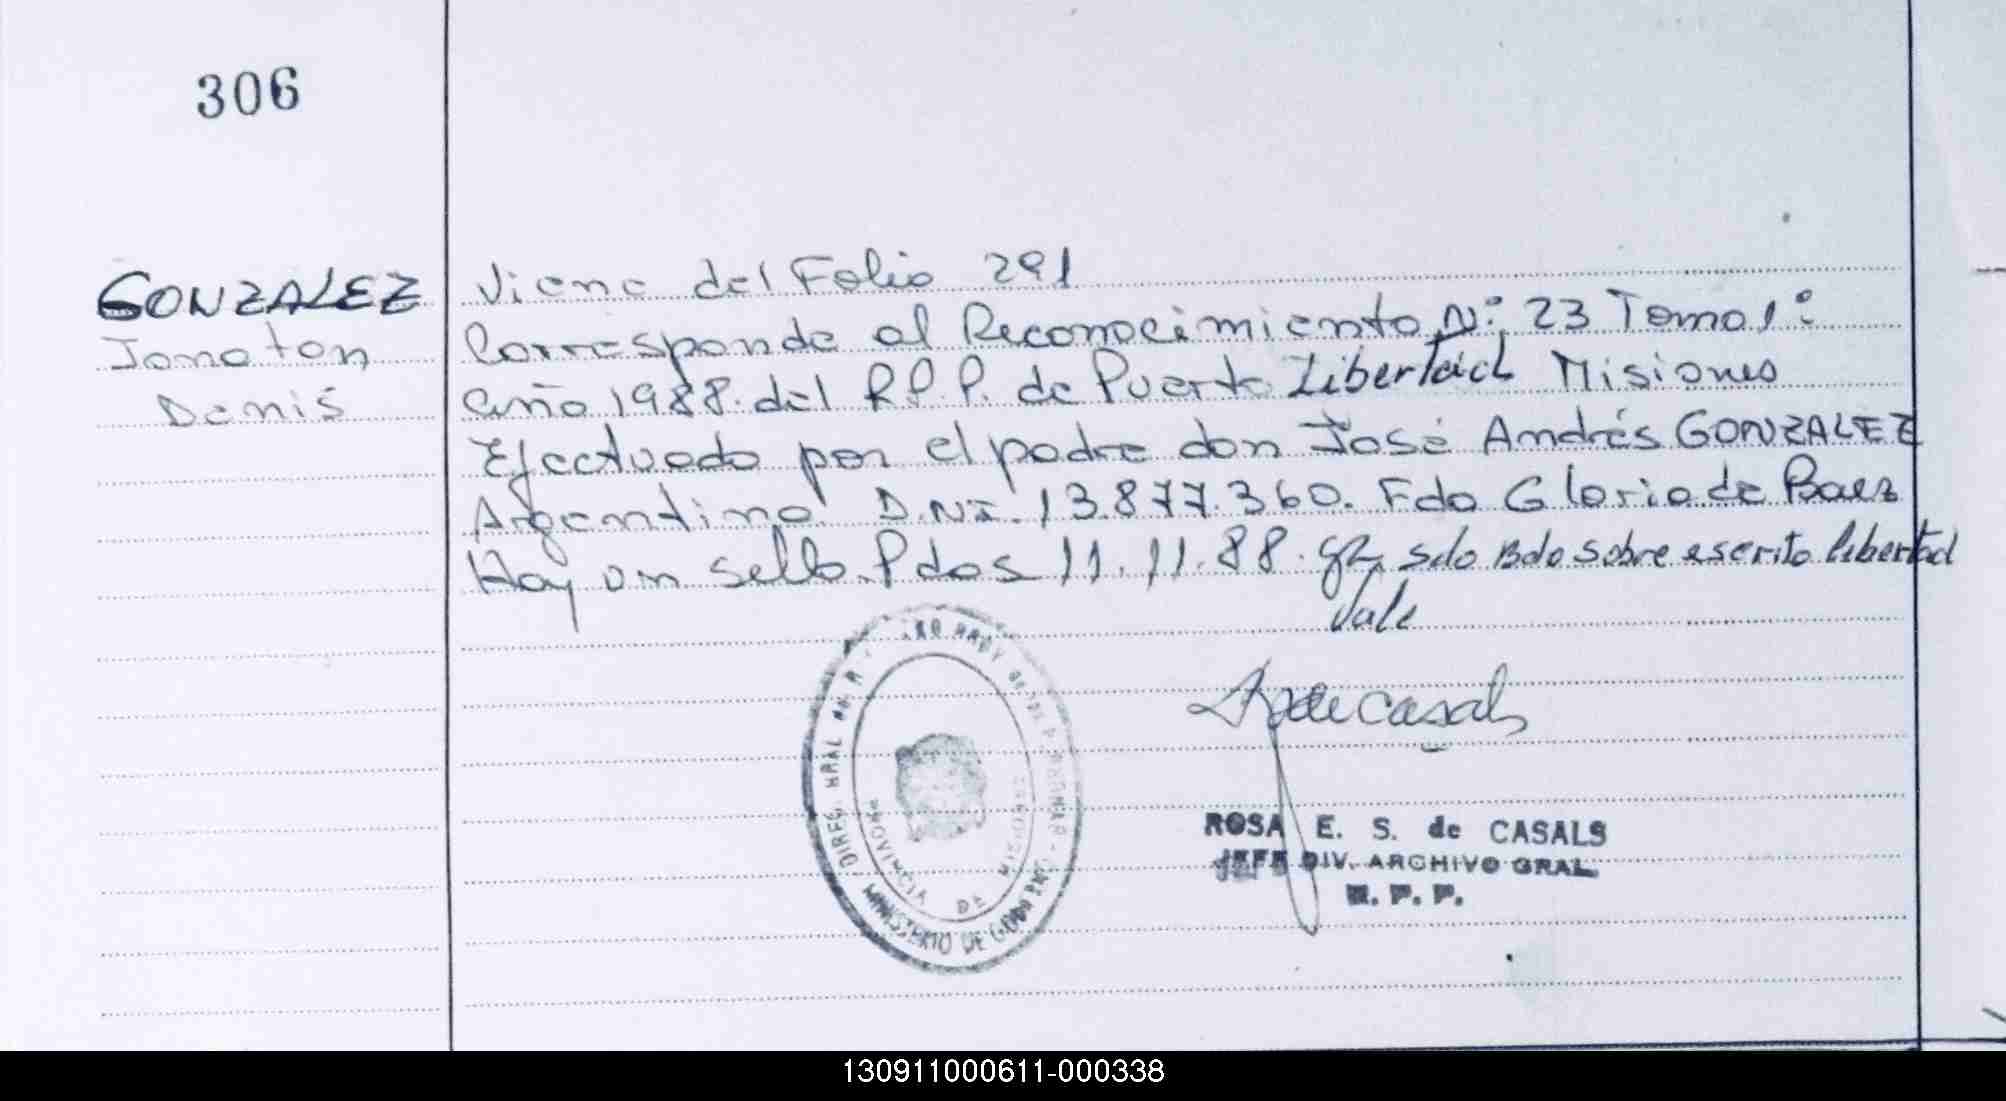 306
GONZALEZ
Jonaton
Denis
Viene del Folio 291
Corresponde al Reconocimiento Nº 23 Tomo 1º
Año 1988 del R.P.P. de Puerto Libertad Misiones
Efectuado por el padre don José Andrés GONZALEZ
Argentino D.N.I. 13.877.360. Fdo Gloria de Baez
Hay un sello. Pdos 11.11.88. sdo Bdo sobre escrito libertad
Vale
PROVINCIA DE MISIONES
MINISTERIO DE GOBIERNO
ROSA E. S. de CASALS
JEFE DIV. ARCHIVO GRAL.
R. P. P.
130911000611-000338